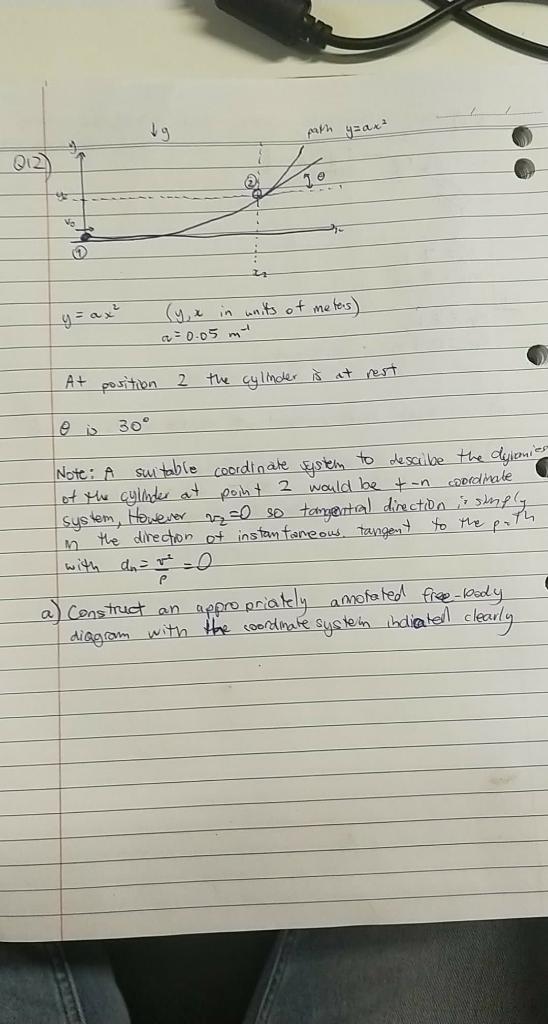 ↓g
path y=ax²
Q12)
y
②
θ
y₂
v₀
x
①
x₂
y = ax² (y, x in units of meters)
a = 0.05 m⁻¹
At position 2 the cylinder is at rest
θ is 30°
Note: A suitable coordinate system to describe the dynamics
of the cylinder at point 2 would be t-n coordinate
system, However v₂=0 so tangential direction is simply
in the direction of instantaneous tangent to the path
with aₙ = v²/ρ = 0
a) Construct an appropriately annotated free-body
diagram with the coordinate system indicated clearly